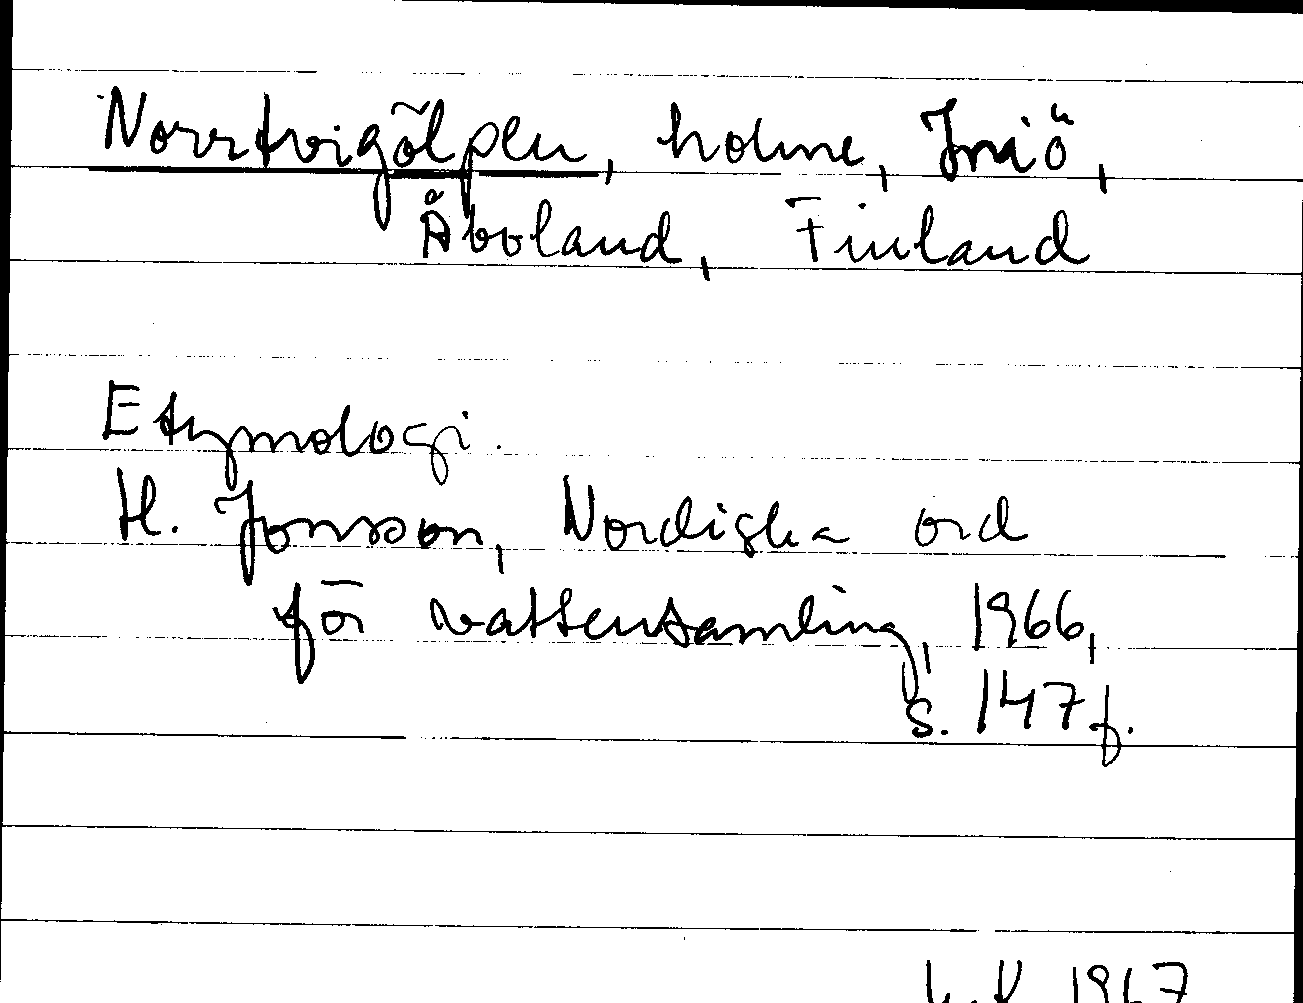 Norrtvigölpen, holme, Iniö,
Åboland, Finland
Etymologi.
H. Jonsson, Nordiska ord
för vattensamling, 1966,
s. 147 f.
1967